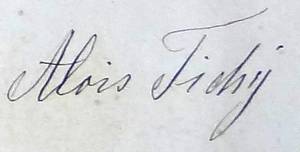 Alois Tichý